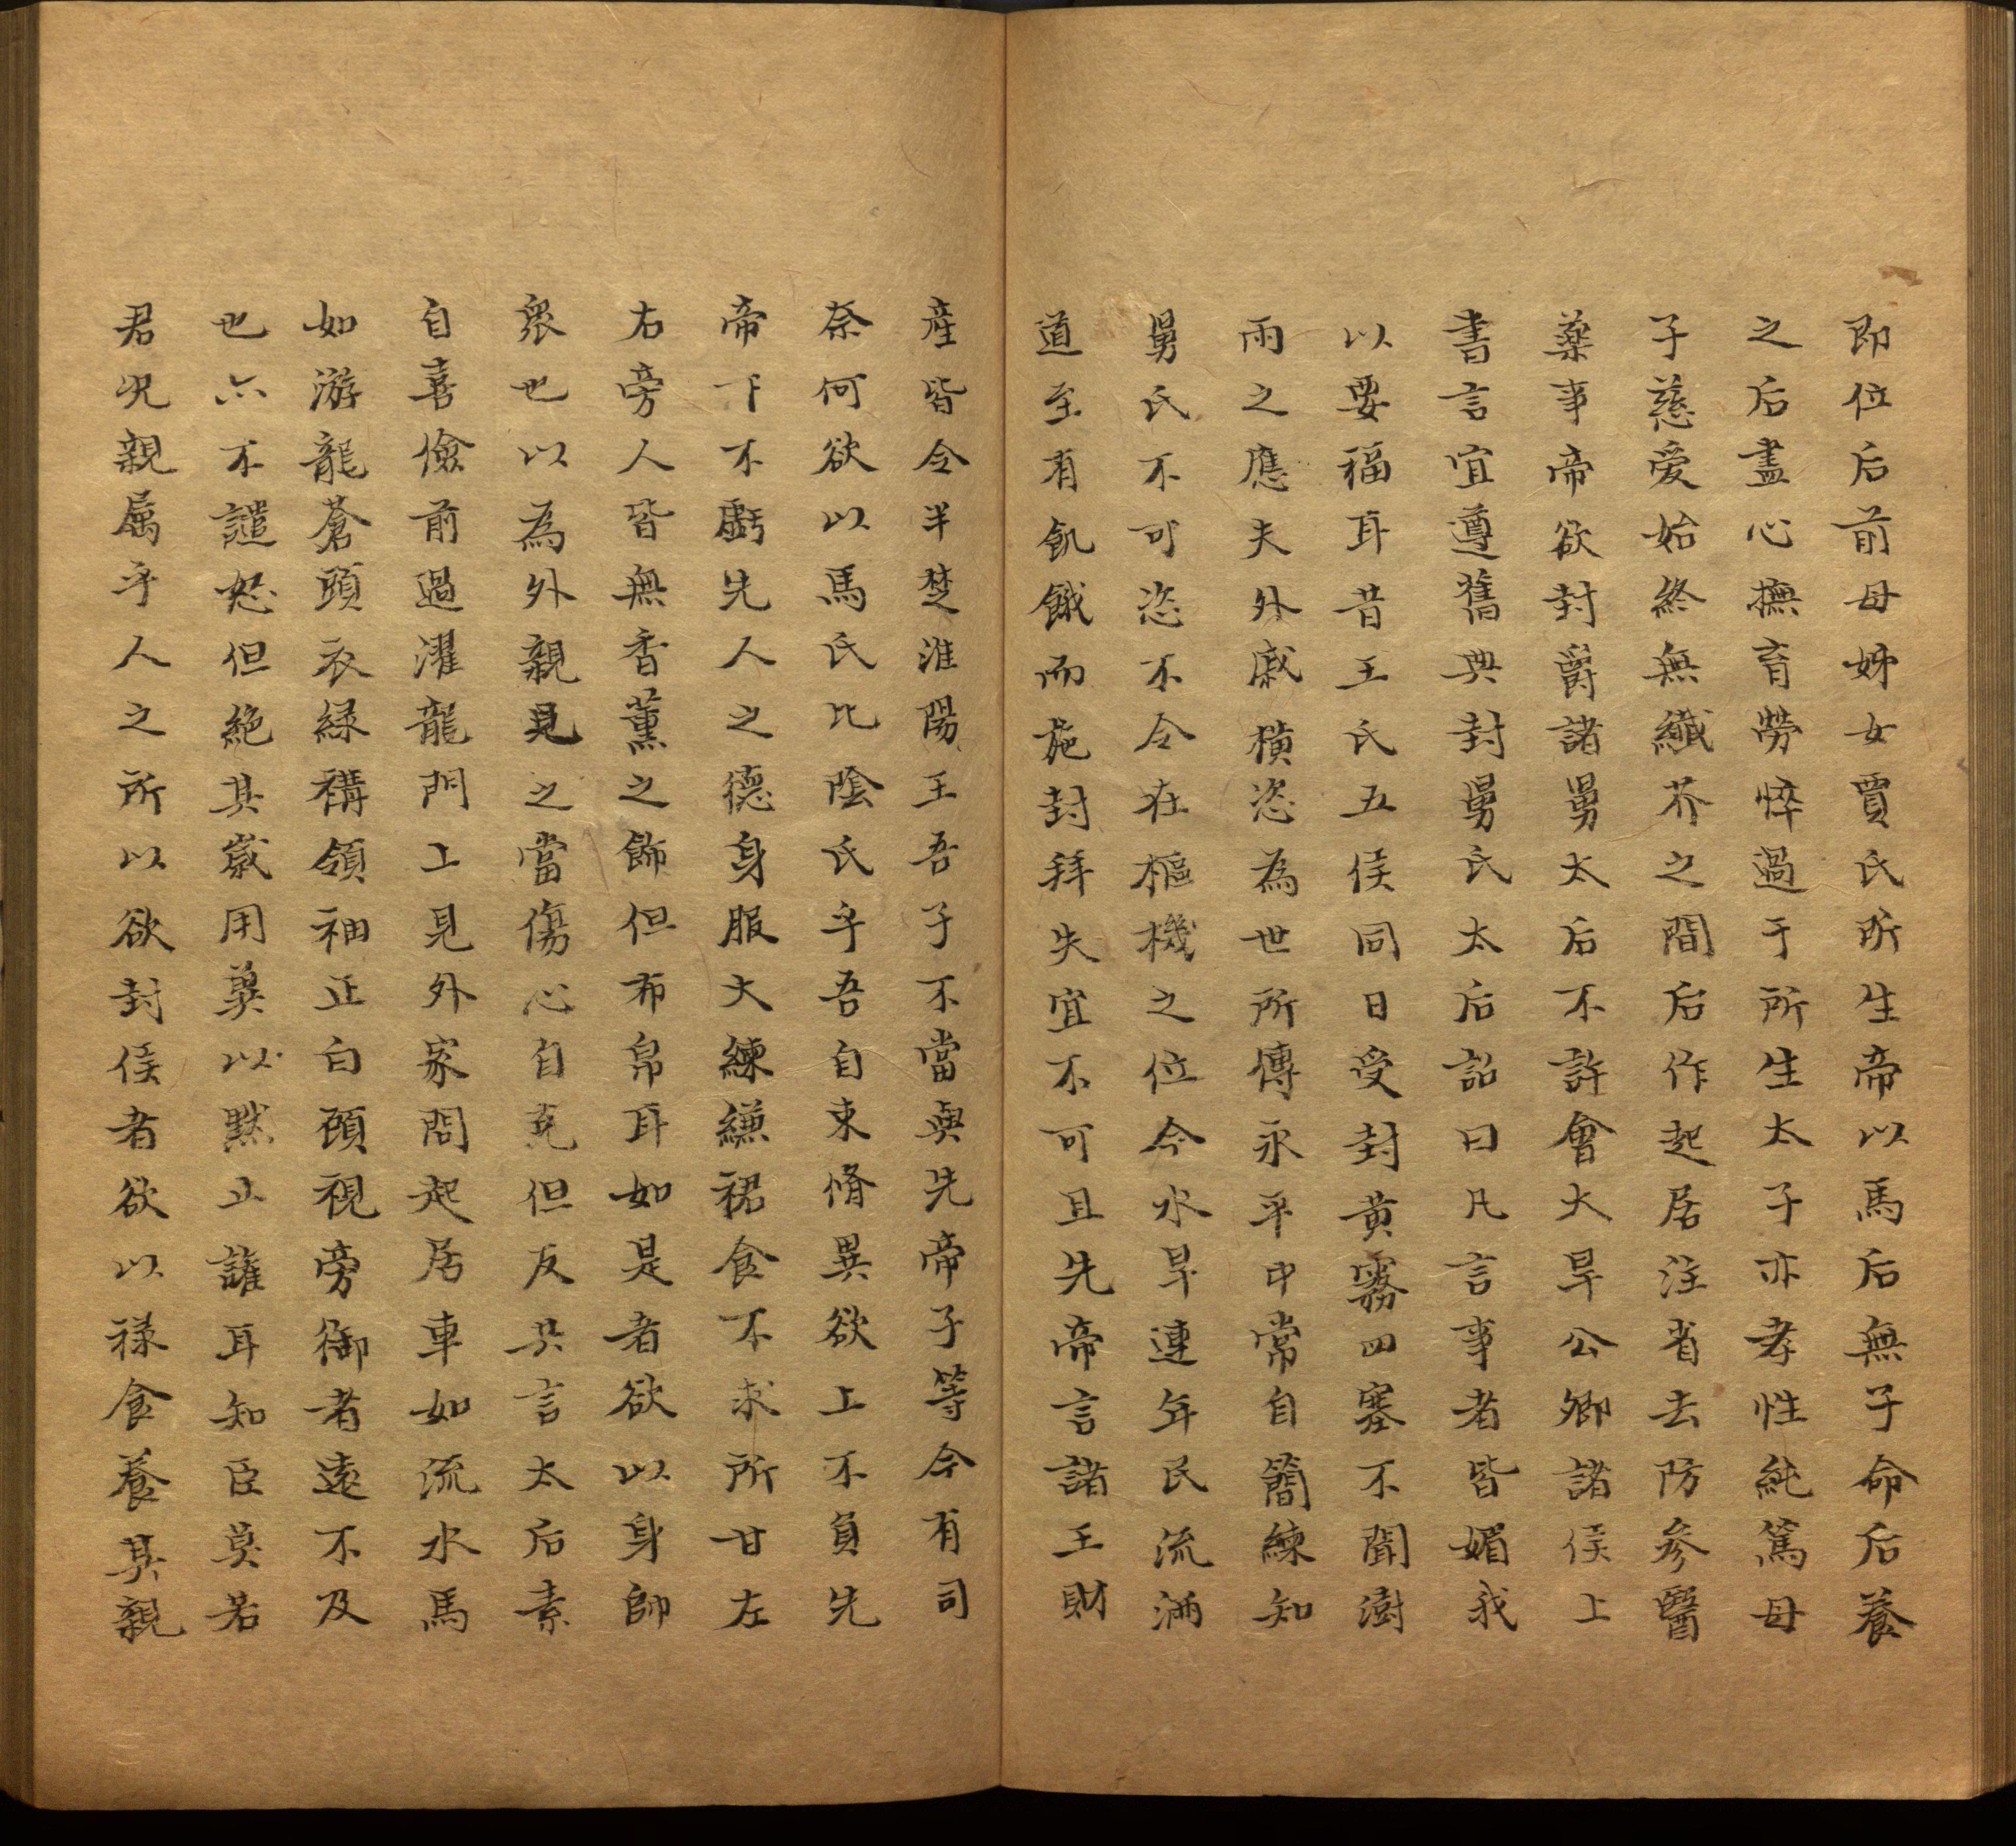 即位后前母姊女賈氏所生帝以馬后無子命后養
之后盡心撫育勞悴過于所生太子亦孝性純篤母
子慈爱始終無纎芥之間后作起居注省去防參醫
藥事帝欲封爵諸舅太后不許會大旱公卿諸侯上
書言宜遵舊典封舅氏太后詔曰凡言事者皆媚我
以要福耳昔王氏五侯同日受封黄霧四塞不聞澍
雨之應夫外戚橫恣為世所傳永平中常自簡練知
舅氏不可恣不令在樞機之位今水旱連年民流滿
道至有飢餓而施封拜失宜不可且先帝言諸王財
産皆令半楚淮陽王吾子不當與先帝子等今有司
奈何欲以馬氏比陰氏乎吾自束脩異欲上不負先
帝下不虧先人之德身服大練縑裙食不求所甘左
右旁人皆無香薰之飾但布帛耳如是者欲以身帥
衆也以為外親見之當傷心自克但反共言太后素
自喜儉前過濯龍門上見外家問起居車如流水馬
如游龍蒼頭衣緑褠領袖正白顧視旁御者遠不及
也亦不譴怒但絶其歲用冀以默止讙耳知臣莫若
君况親屬乎人之所以欲封侯者欲以祿食養其親